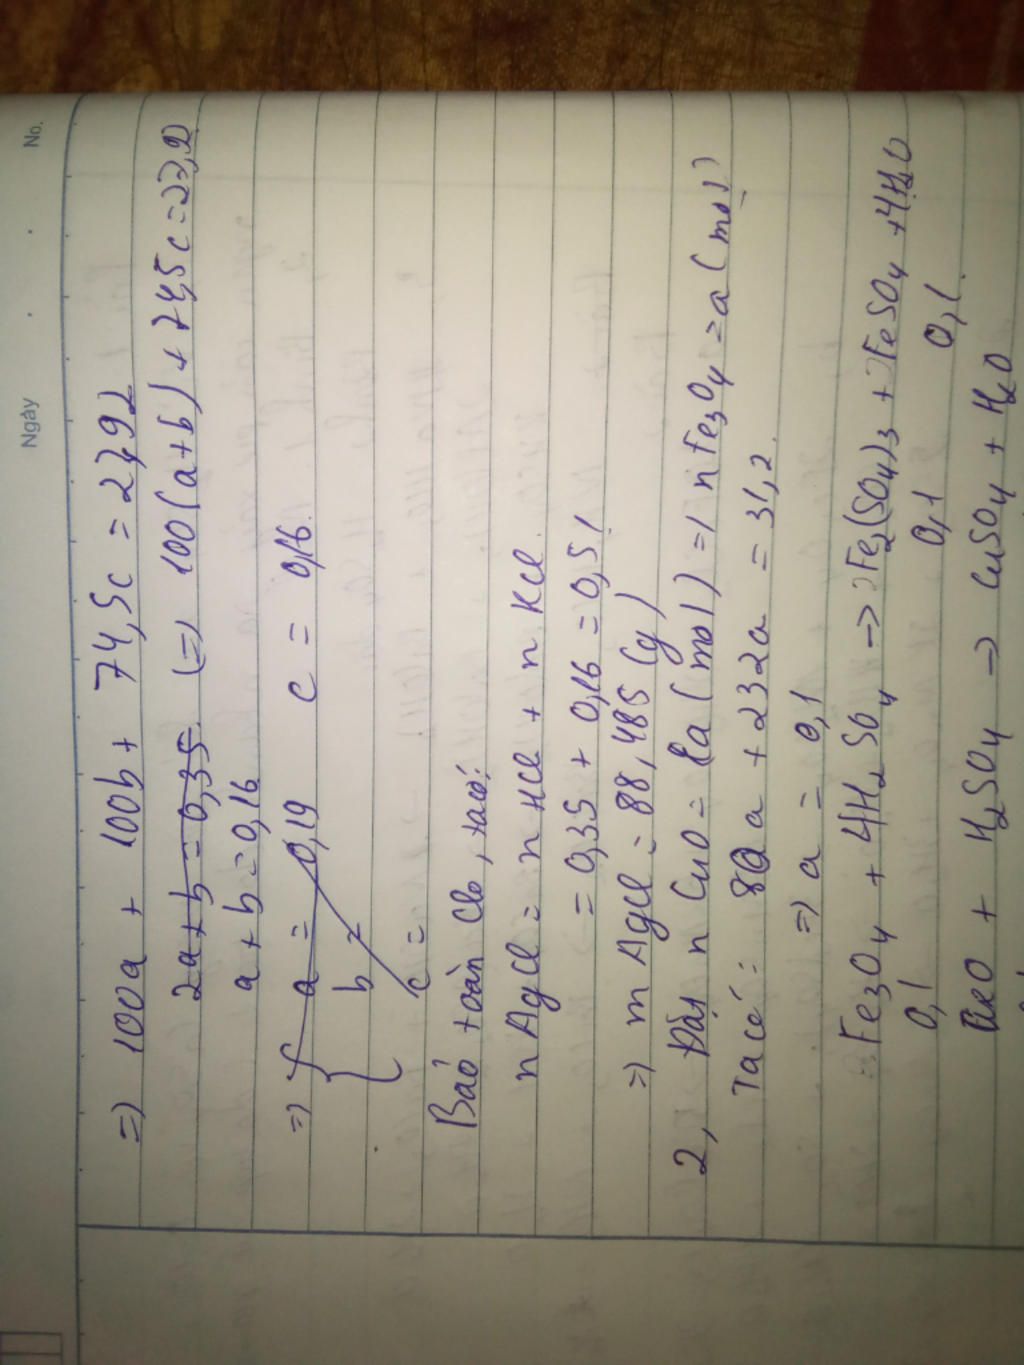 Ngày . . No.
=) 100a + 100b + 74,5c = 27,92
2a + b = 0,35 (=) 100(a+b) + 74,5c = 27,92
a + b = 0,16
=) { a = 0,19 c = 0,16.
b =
c =
Bảo toàn Clo, ta có:
n AgCl = n HCl + n KCl.
= 0,35 + 0,16 = 0,51
=) m AgCl = 88,485 (g)
2, Đặt n CuO = a (mol) =) n Fe3O4 = a (mol)
Ta có: 80a + 232a = 31,2.
=) a = 0,1
Fe3O4 + 4H2SO4 -> Fe2(SO4)3 + FeSO4 + 4H2O
0,1 0,1 0,1.
CuO + H2SO4 -> CuSO4 + H2O